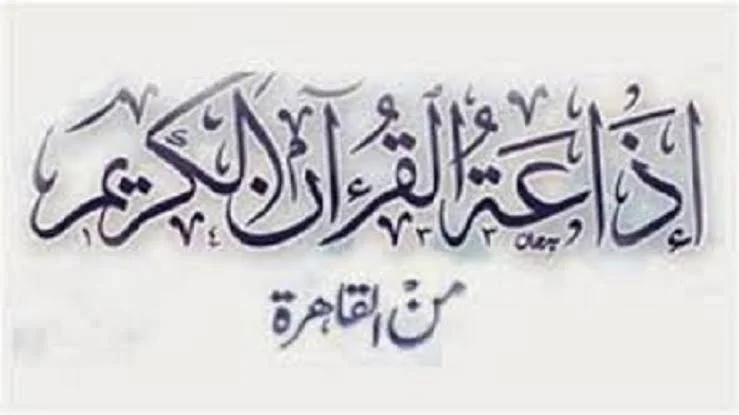 إذَاعَةُ القُرآنِ الكَرِيم
من القاهرة